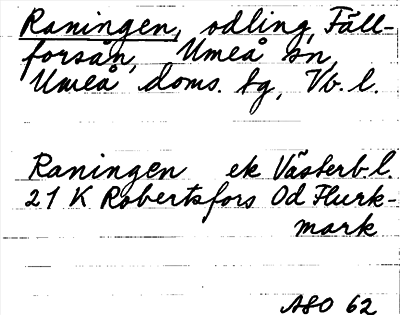 Raningen, odling, Fäll-
forsån, Umeå sn,
Umeå doms. tg, Vb. l.
Raningen ek Västerb. l.
21 K Robertsfors Od Flurk-
mark
ASO 62